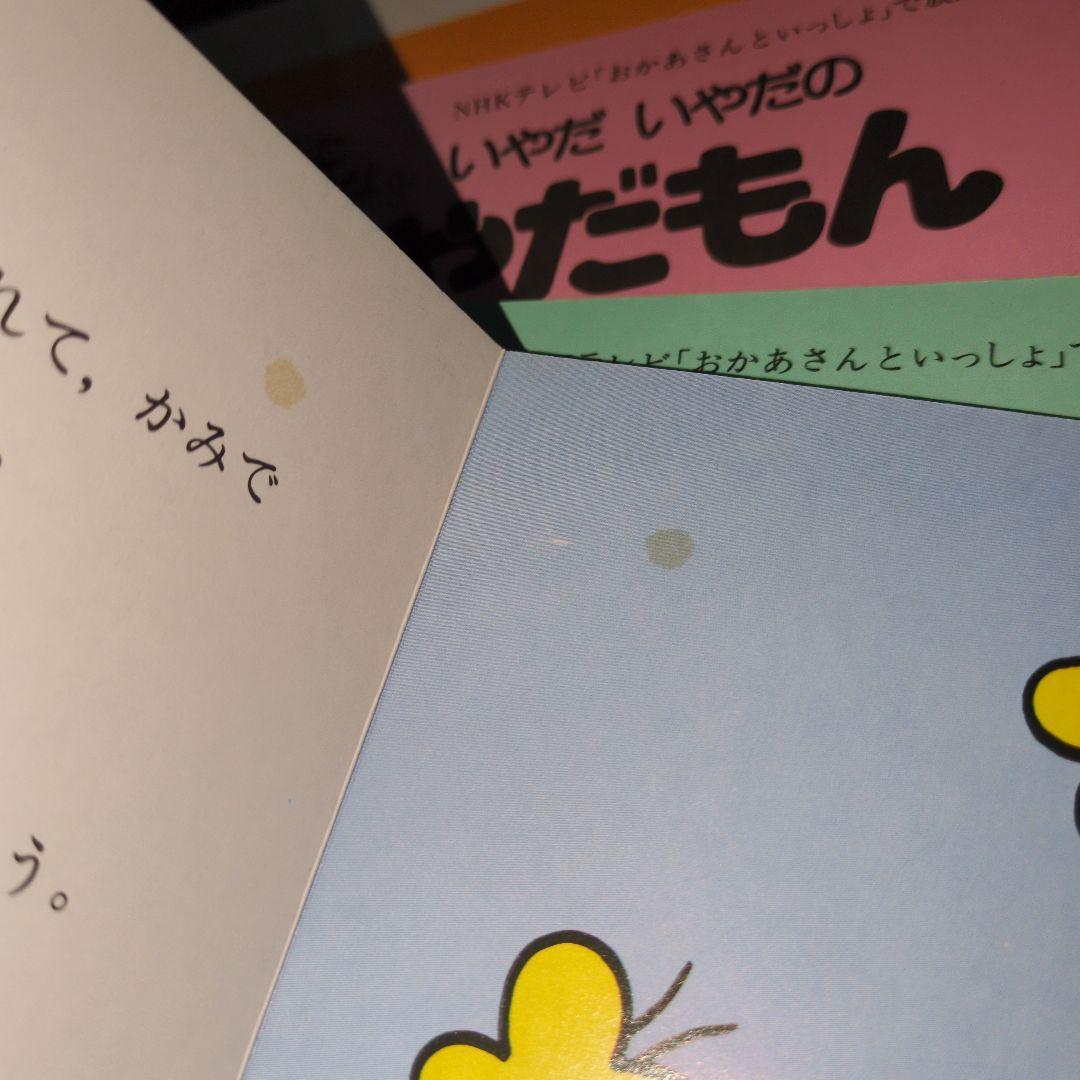 NHKテレビ「おかあさんといっしょ」で放
いやだ いやだの
やだもん
テレビ「おかあさんといっしょ」で
れて，かみで
う。